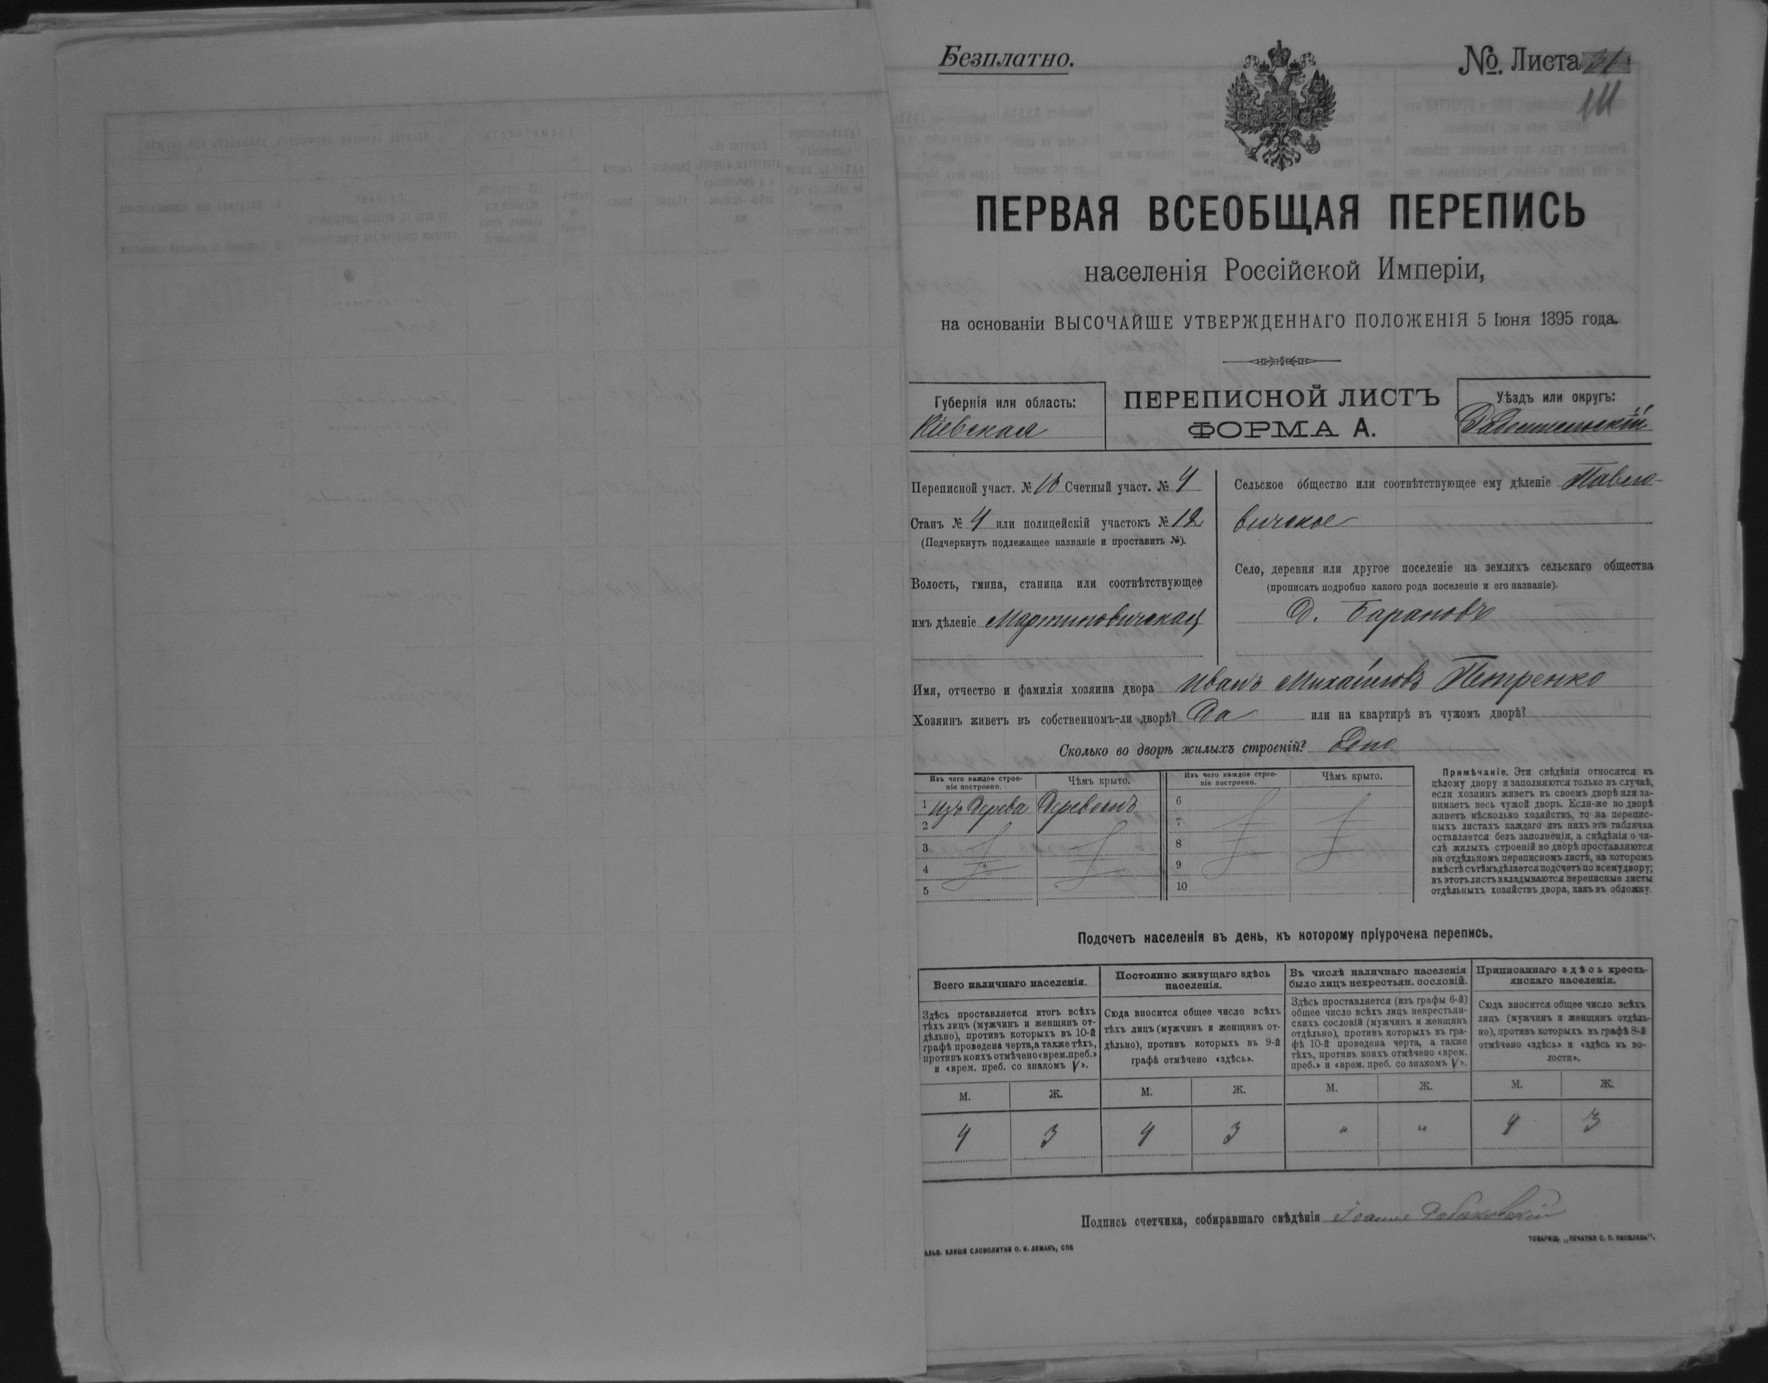 Безплатно.
№. Листа 31
ПЕРВАЯ ВСЕОБЩАЯ ПЕРЕПИСЬ
населенія Россійской Имперіи,
на основаніи ВЫСОЧАЙШЕ УТВЕРЖДЕННАГО ПОЛОЖЕНІЯ 5 Іюня 1895 года.
Губернія или область:
Кіевская
ПЕРЕПИСНОЙ ЛИСТЪ
ФОРМА А.
Уѣздъ или округъ:
Радомысльскій
Переписной участ. № 16 Счетный участ. № 4
Станъ № 4 или полицейскій участокъ № 12
(Подчеркнуть подлежащее названіе и проставить №).
Волость, гмина, станица или соотвѣтствующее
имъ дѣленіе Мартиновичская
Сельское общество или соотвѣтствующее ему дѣленіе Павло-
вичское
Село, деревня или другое поселеніе на земляхъ сельскаго общества
(прописать подробно какого рода поселеніе и его названіе).
Д. Барановъ
Имя, отчество и фамилія хозяина двора Иванъ Михайловъ Петренко
Хозяинъ живетъ въ собственномъ-ли дворѣ? Да или на квартирѣ въ чужомъ дворѣ?
Сколько во дворѣ жилыхъ строеній? Одно
Изъ чего каждое строе-
ніе построено.
Чѣмъ крыто.
1 Изъ дерева Деревомъ
2
3
4
5
Изъ чего каждое строе-
ніе построено.
Чѣмъ крыто.
6
7
8
9
10
Примѣчаніе. Эти свѣдѣнія относятся къ
цѣлому двору и заполняются только въ случаѣ,
если хозяинъ живетъ въ своемъ дворѣ или за-
нимаетъ весь чужой дворъ. Если-же во дворѣ
живетъ нѣсколько хозяйствъ, то на перепис-
ныхъ листахъ каждаго изъ нихъ эта табличка
оставляется безъ заполненія, а свѣдѣнія о чи-
слѣ жилыхъ строеній во дворѣ проставляются
на отдѣльномъ переписномъ листѣ, на которомъ
вмѣстѣ съ тѣмъ дѣлается подсчетъ по всему двору;
въ этотъ листъ вкладываются переписные листы
отдѣльныхъ хозяйствъ двора, какъ въ обложку.
Подсчетъ населенія въ день, къ которому пріурочена перепись.
Всего наличнаго населенія.
Здѣсь проставляется итогъ всѣхъ
тѣхъ лицъ (мужчинъ и женщинъ от-
дѣльно), противъ которыхъ въ 10-й
графѣ проведена черта, а также тѣхъ,
противъ коихъ отмѣчено «врем. преб.»
и «врем. преб. со знакомъ V».
М. Ж.
4 3
Постоянно живущаго здѣсь
населенія.
Сюда вносится общее число всѣхъ
тѣхъ лицъ (мужчинъ и женщинъ от-
дѣльно), противъ которыхъ въ 9-й
графѣ отмѣчено «здѣсь».
М. Ж.
4 3
Въ числѣ наличнаго населенія
было лицъ некрестьян. сословій.
Здѣсь проставляется (изъ графы 6-й)
общее число всѣхъ лицъ некрестьян-
скихъ сословій (мужчинъ и женщинъ
отдѣльно), противъ которыхъ въ гра-
фѣ 10-й проведена черта, а также
тѣхъ, противъ коихъ отмѣчено «врем.
преб.» и «врем. преб. со знакомъ V».
М. Ж.
" "
Приписаннаго здѣсь кресть-
янскаго населенія.
Сюда вносится общее число всѣхъ
лицъ (мужчинъ и женщинъ отдѣль-
но), противъ которыхъ въ графѣ 8-й
отмѣчено «здѣсь» и «здѣсь къ во-
лости».
М. Ж.
4 3
Подпись счетчика, собиравшаго свѣдѣнія
ГАЛЬВ. КЛИШЕ СЛОВОЛИТНИ О. И. ЛЕМАНЪ, СПБ
ТОВАРИЩ. „ПЕЧАТНЯ С. П. ЯКОВЛЕВА".